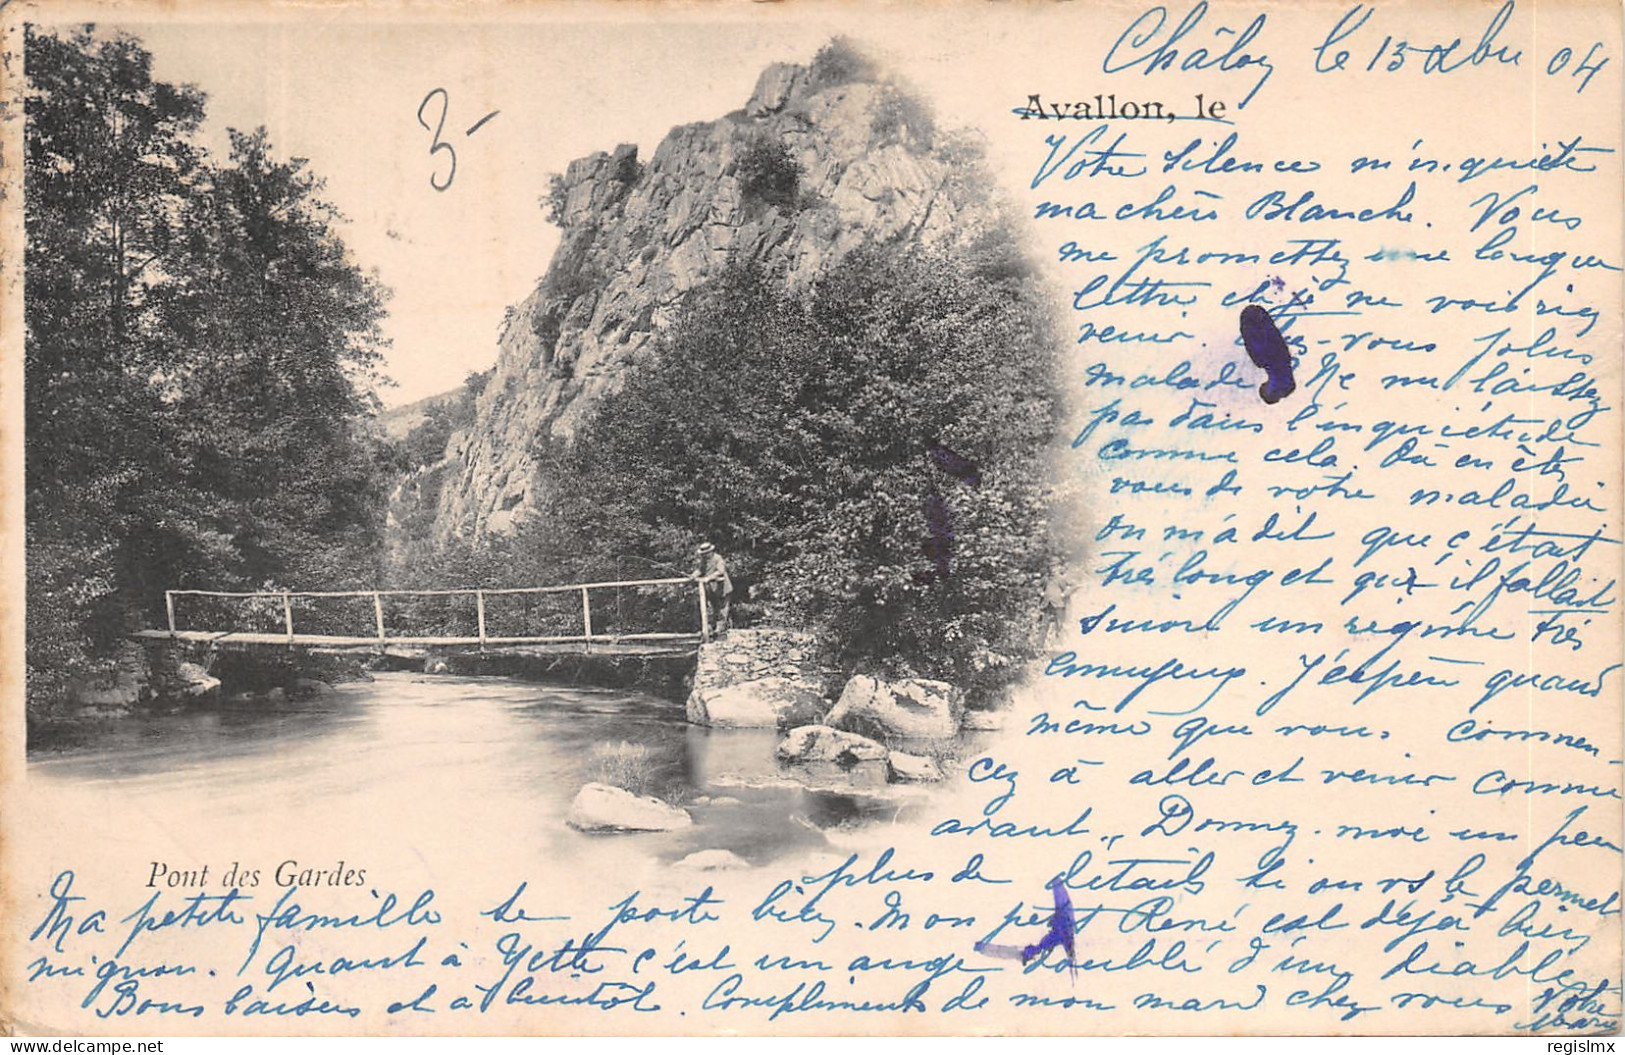 Châloy le 15 Xbre 04
3-
Avallon, le
Votre silence m'inquiète
ma chère Blanche. Vous
me promettez une longue
lettre et je ne vois rien
venir. -vous plus
malade? Ne me laissez
pas dans l'inquiétude
comme cela. Où en êtes
vous de votre maladie
on m'a dit que c'était
très long et qu'il fallait
suivre un régime très
ennuyeux. J'espère quand
même que vous commen-
cez à aller et venir comme
avant. Donnez-moi un peu
plus de détails si on vs le permet
Pont des Gardes
Ma petite famille se porte bien. Mon petit René est déjà bien
mignon. Quant à Yette c'est un ange doublé d'un diable
Bons baisers et à bientôt. Compliments de mon mari chez vous Votre
Marie
delcampe.net
regislmx